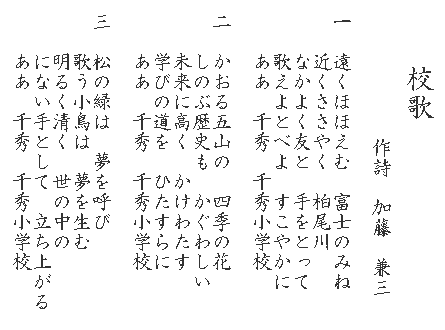 校歌
作詩　加藤　兼三
一
遠くほほえむ　富士のみね
近くささやく　柏尾川
なかよく友と　手をとって
歌えよとべよ　すこやかに
ああ　千秀　千秀小学校
二
かおる五山の　四季の花
しのぶ歴史も　かぐわしい
未来に高く　かけわたす
学びの道を　ひたすらに
ああ　千秀　千秀小学校
三
松の緑は　夢を呼び
歌う小鳥は　夢を生む
明るく清く　世の中の
にない手として　立ち上がる
ああ　千秀　千秀小学校